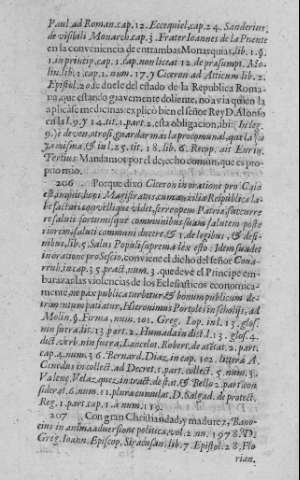 Paul ad Roman. cap. 12. Eccequiel, cap. 24. Sanderius,
de visibili Monarch. cap. 3. Frater Ioannes de la Puente
en la conveniencia de entrambas Monarquias, lib. 1. §.
1. in princip. cap. 1. cap. non liceat 12. de præsumpt. Mo-
lin. lib. 1. cap. 1. num. 17. y Ciceron ad Atticum lib. 2.
Epistol. 20. se duele del estado de la Republica Roma-
na, que estando gravemente doliente, no avia quien la
aplicasse medicinas: explicò bien el señor Rey D. Alonso
en la l. 9. y 14. tit. 1. part. 2. esta obligacion, ibi:
9.) è deven, otrosi, guardar mas la procomunal, que la
misma, & in l. 25. tit. 18. lib. 6. Recop. ait Eurip.
Tertius: Mandamos por el derecho comun, que es pro-
prio mio.
206 Porque dixo Ciceron in oratione pro Caio
inquit, boni Magistratus, cum avilla Reipublicæ la-
befactari, convellique videt, ferre opem Patriæ, succurre-
re saluti fortunisque communibus suam salutem poste-
riorem, saluti communi ducere, & 1. de legibus, & de fi-
nibus, lib. 5. Salus Populi suprema lex esto: Idem suadet
in oratione pro Sextio, conviene el dicho del señor Cova-
rrub. in cap. 35. pract. num. 3. que devè el Principe em-
barazar las violencias de los Eclesiasticos economica-
mente, ne pax publica turbetur, & bonum publicum de-
trimentum patiatur, Hieronimus Portoles in scholijs, ad
Molin. §. Firma, num. 101. Greg. Lop. in l. 13. glos.
nin fuerça, tit. 13. part. 2. Humada in dict. l. 13. glos. 4.
dict. verb. nin fuerça, Lancelot. Robert. de ætat. 2. part.
cap. 4. num. 36. Bernard. Diaz, in cap. 102. littera A.
Cenedus in collect. ad Decret. 1. part. collect. 5. num. 5.
Valenç. Velazquez, in tract. de stat. & Bello 2. part. con-
siderat. 6. num. 11. plura cumulat, D. Salgad. de protect.
Reg. 1. part. cap. 1. à num. 119.
207 Con gran Christiandad, y madurez, Bavo-
cius in animadversione politica, vol. 2. nn. 1978. D.
Greg. Ioann. Episcop. Siracusan. lib. 7. Epistol. 28. Flo-
rian.